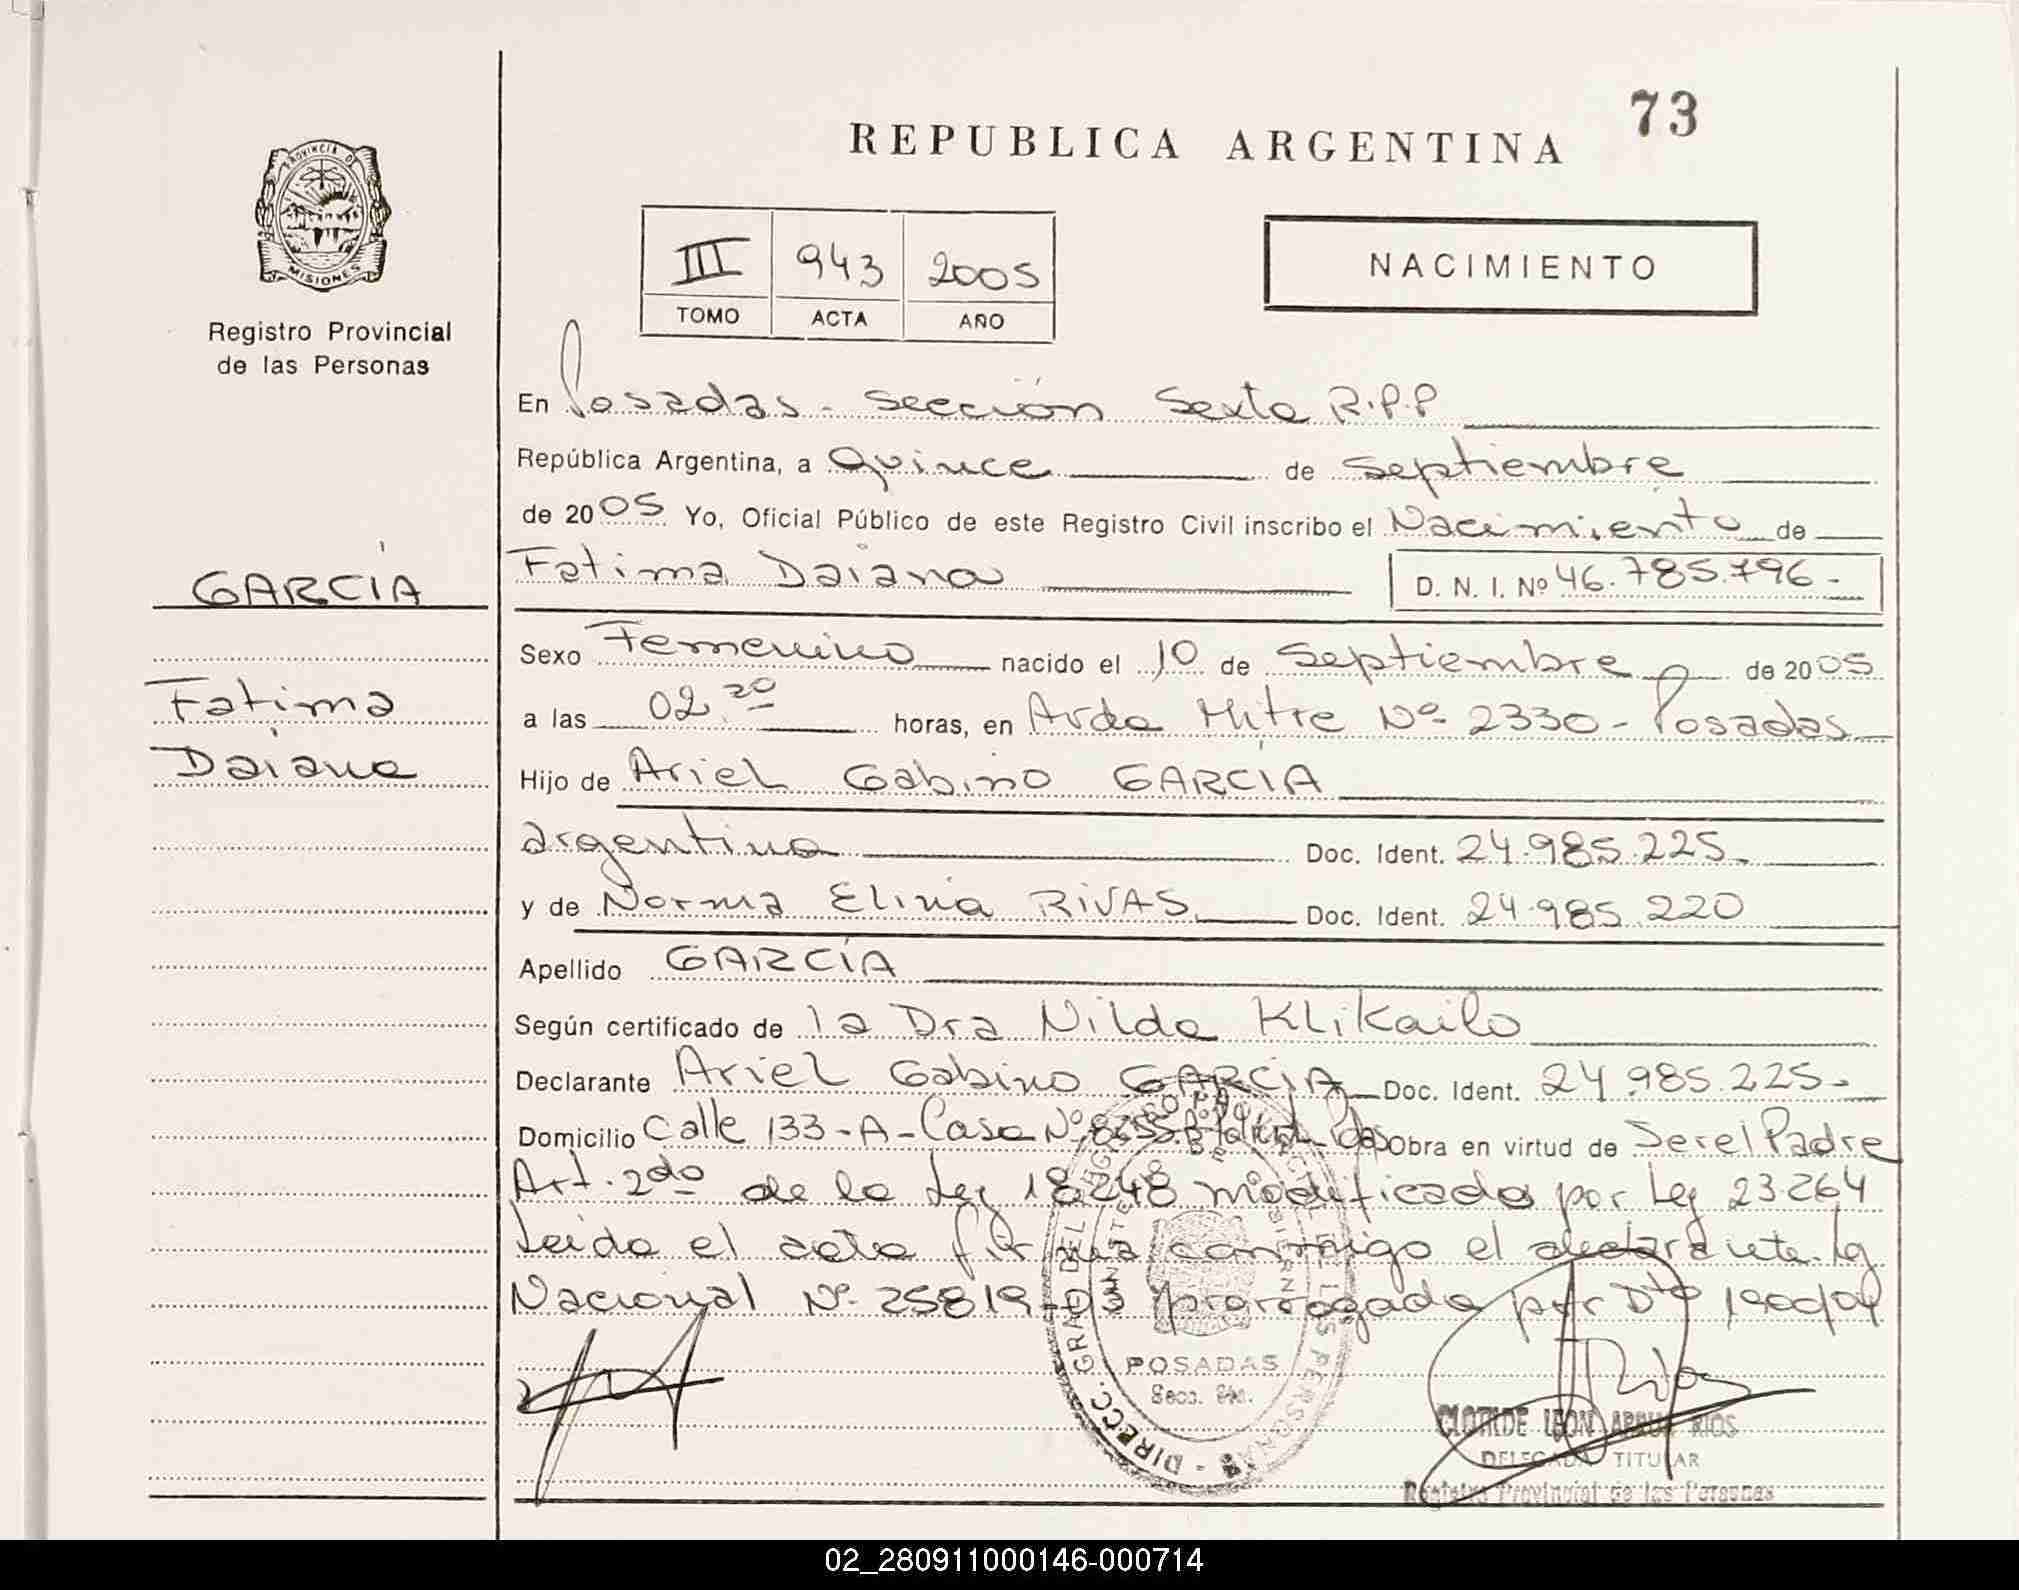 73
REPUBLICA ARGENTINA
PROVINCIA DE
MISIONES
Registro Provincial
de las Personas
III 943 2005
TOMO ACTA AÑO
NACIMIENTO
En Posadas - Sección Sexta R.P.P
República Argentina, a Quince de Septiembre
de 2005 Yo, Oficial Público de este Registro Civil inscribo el Nacimiento de
Fatima Daiana D. N. I. Nº 46.785.796.-
GARCÍA
Fatima
Daiana
Sexo Femenino nacido el 10 de Septiembre de 2005
a las 02.20 horas, en Avda Mitre Nº 2330 - Posadas
Hijo de Ariel Gabino GARCIA
argentina Doc. Ident. 24.985.225.
y de Norma Elina RIVAS Doc. Ident. 24.985.220
Apellido GARCÍA
Según certificado de la Dra Nilda Klikailo
Declarante Ariel Gabino GARCIA Doc. Ident. 24.985.225-
Domicilio Calle 133-A-Casa Nº Obra en virtud de Ser el Padre
Art. 2do de la Ley 18248 modificada por Ley 23264
Leida el acta firma conmigo el declarante. Ley
Nacional Nº 25819-03 prorrogada por Dto 1900/04
POSADAS
Secc. 6ta.
CLOTILDE LEON RIOS
DELEGADA TITULAR
Registro Provincial de las Personas
02_280911000146-000714